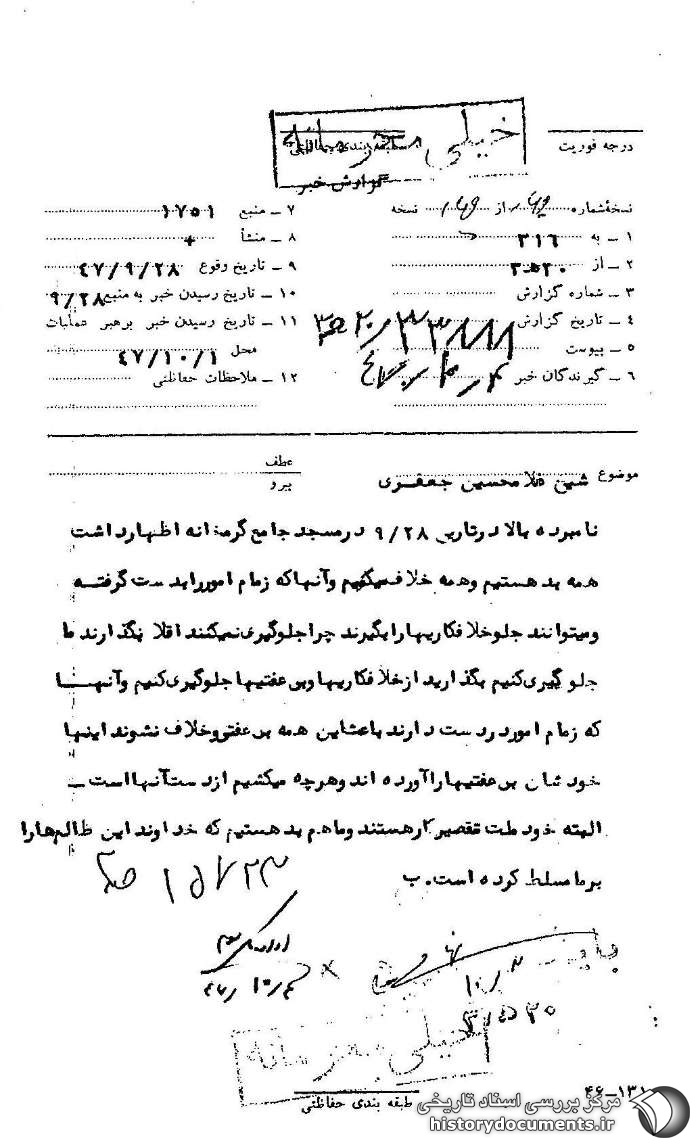 خیلی محرمانه
درجه فوریت
طبقه بندی حفاظتی
گزارش خبر
نسخهٔ شماره از نسخه
۱ ــ به ۳۱۶
۲ ــ از ۲۰ ه ۳
۳ ــ شماره گزارش
۴ ــ تاریخ گزارش
۵ ــ پیوست
۶ ــ گیرندگان خبر
۷ ــ منبع ۱۷۵۱
۸ ــ منشأ
۹ ــ تاریخ وقوع ۴۷/۹/۲۸
۱۰ ــ تاریخ رسیدن خبر به منبع ۹/۲۸
۱۱ ــ تاریخ رسیدن خبر برهبر عملیات
محل ۴۷/۱۰/۱
۱۲ ــ ملاحظات حفاظتی
موضوع شیخ غلامحسین جعفری
عطف
پیرو
نامبرده بالا درتاریخ ۹/۲۸ درمسجد جامع گرمخانه اظهارداشت
همه بد هستیم وهمه خلاف میکنیم وآنهاکه زمام اموررابدست گرفته
ومیتوانند جلوخلافکاریهارابگیرند چراجلوگیری نمیکنند اقلا بگذارند ما
جلوگیری کنیم بگذارید ازخلافکاریهاوبی عفتیها جلوگیری کنیم وآنهــا
که زمام اموردردست دارند باعث این همه بی عفتی وخلاف نشوند اینها
خودشان بی عفتیهاراآورده اند وهرچه میکشیم ازدست آنهااست ــ
البته خود ملت تقصیرکارهستند وماهم بد هستیم که خداوند این ظالم هارا
برما مسلط کرده است. ب
۱۵۷۲۳
۱۰/۳
خیلی محرمانه
طبقه بندی حفاظتی
۴۶ــ۱۳۱
مرکز بررسی اسناد تاریخی
historydocuments.ir